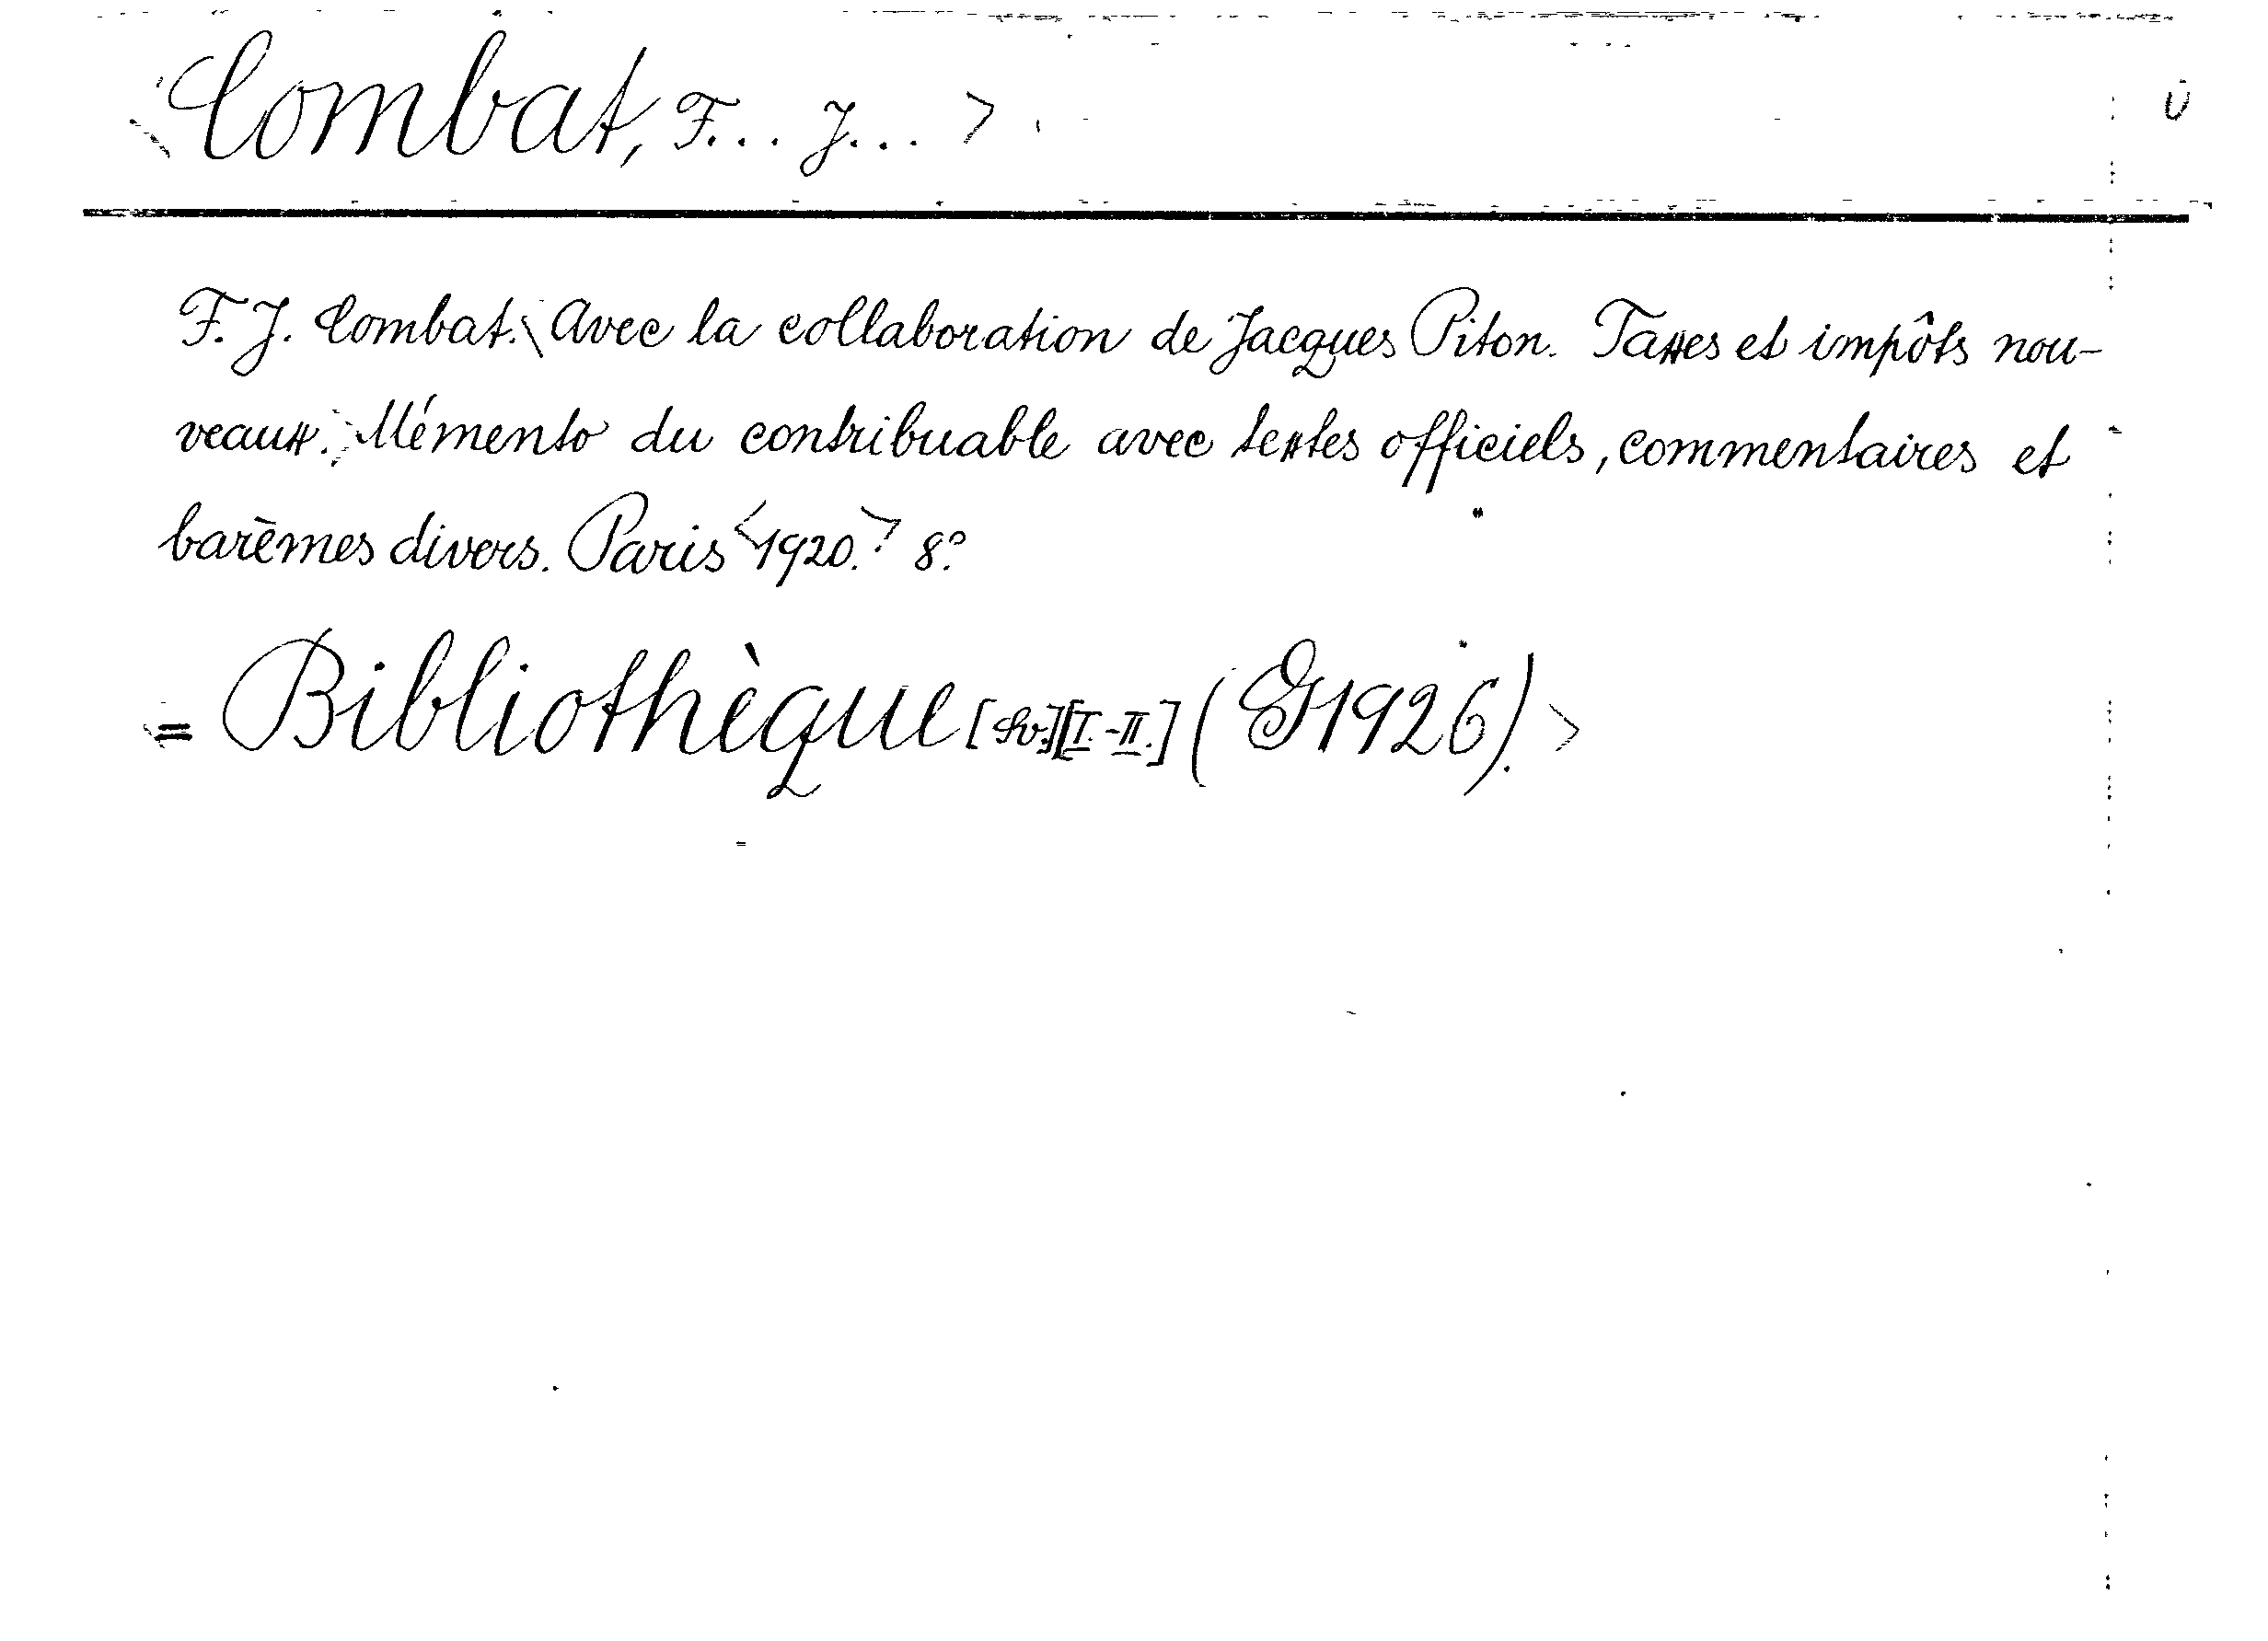 <Combat, F... J...>
U
F. J. Combat. Avec la collaboration de Jacques Piton. Taxes et impôts nou-
veaux. Mémento du contribuable avec textes officiels, commentaires et
barèmes divers. Paris <1920.> 8°.
= Bibliothèque [I.-II.] (G 1926).>